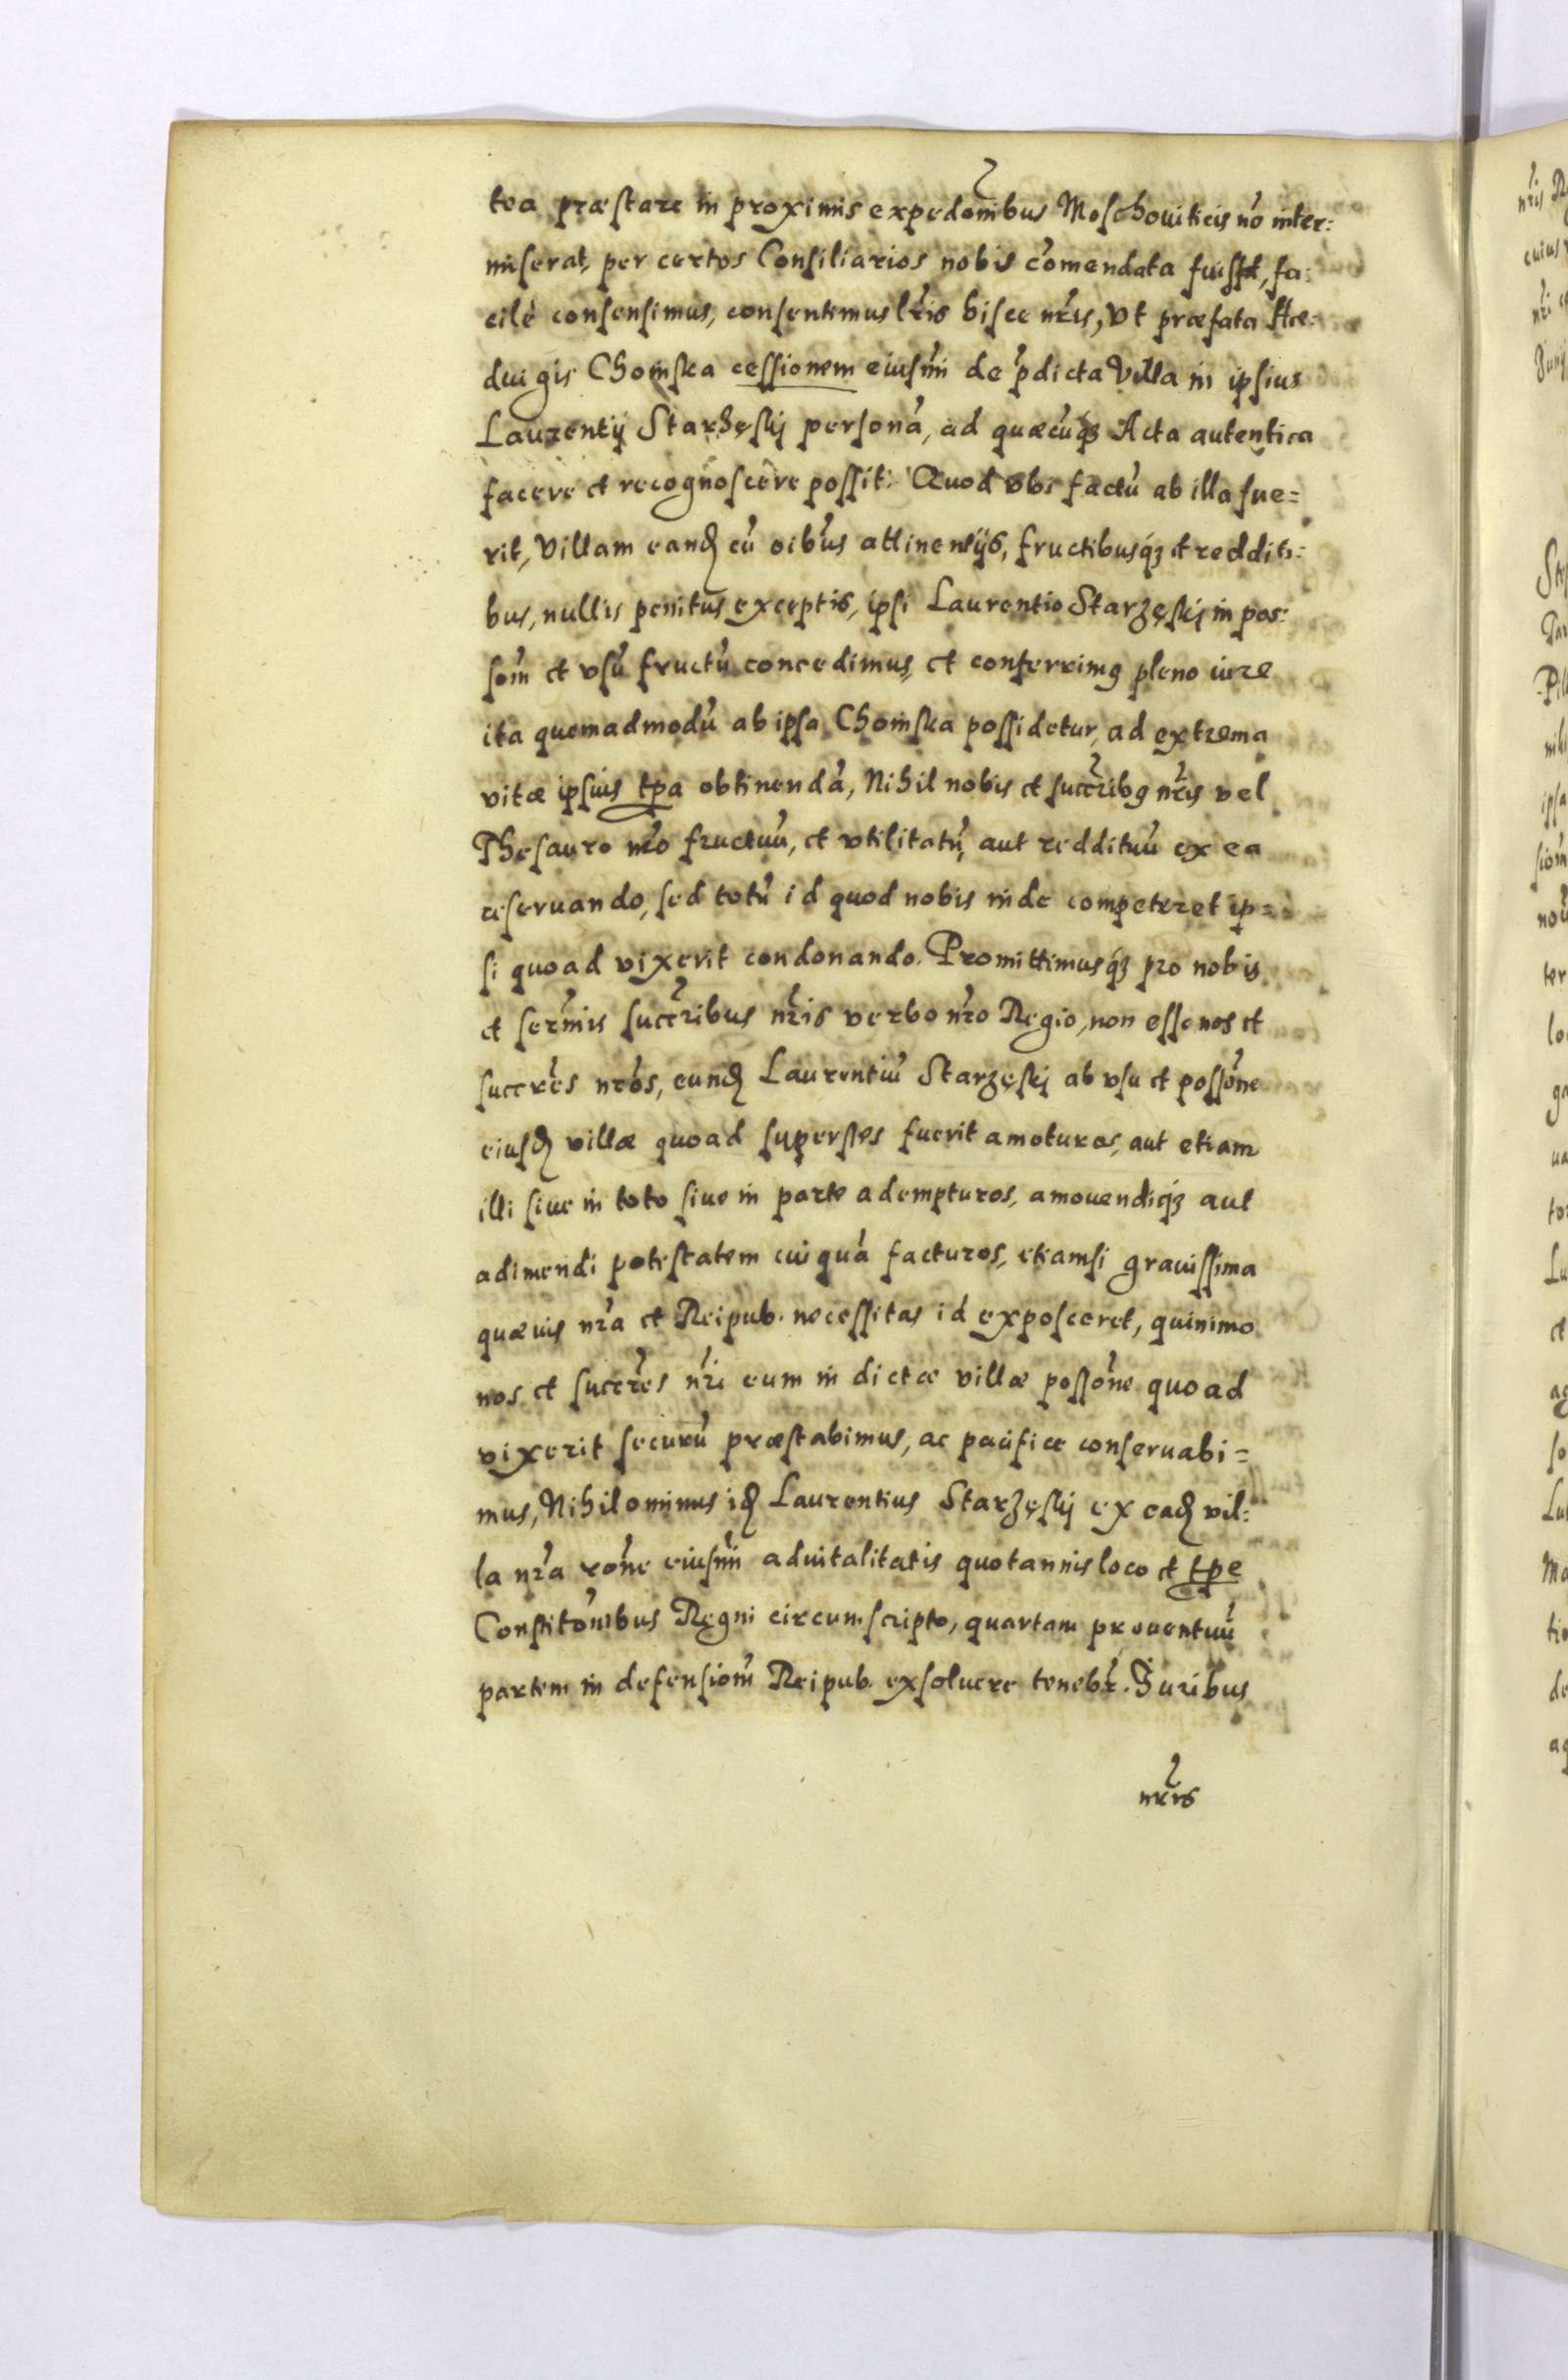 tea præstare in proximis expedõnibus Moschouiticis nõ inter:
miserat, per certos Consiliarios nobis cõmendata fuisset, fa:
cilè consensimus, consentimus lr̃is hisce nr̃is, Vt præfata Hæ:
duigis Choinska cessionem eiusm̃i de p̃dicta Villa in ipsius
Laurentij Starzęskj personã, ad quæcũqꝫ Acta autentica
facere et recognoscere possit. Quod vbi factũ ab illa fue=
rit, Villam eanđ cũ oĩbus attinenẽijs, fructibusqꝫ et redditi:
bus, nullis penitus exceptis, ipsi Laurentio Starzęskj in pos:
soñi et vsũ fructũ concedimus, et conferrimꝰ pleno iure
ita quemadmodũ ab ipsa Choinska possidetur, ad extrema
vitæ ipsius tp̃a obtinendã, Nihil nobis et succr̃ibꝰ nr̃is vel
Thesauro nr̃o fructuũ, et vtilitatũ, aut reddituũ ex ea
reseruando, sed totũ id quod nobis inde competeret ip=
si quoad vixerit condonando. Promittimusqꝫ pro nobis
et serm̃is succr̃ibus nr̃is verbo nr̃o Regio, non esse nos et
succr̃es nr̃os, eunđ Laurentiũ Starzęskj ab vsu et possõne
eiusđ villæ quoad superstes fuerit amoturos, aut etiam
illi siue in toto siue in parte adempturos, amouendiqꝫ aut
adimendi potestatem cuiquã facturos, etiamsi grauissima
quæuis nr̃a et Reipub. necessitas id exposceret, quinimo
nos et succr̃es nr̃i eum in dictæ villæ possõne quoad
vixerit securũ præstabimus, ac pacifice conseruabi=
mus, Nihilominus iđ Laurentius Starzęskj ex eađ vil:
la nr̃a rõne eiusm̃i aduitalitatis quotannis loco et tp̃e
Constitõnibus Regni circumscripto, quartam prouentuũ
partem in defensioñ Reipub. exsoluere tenebr̃. Iuribus
nr̃is